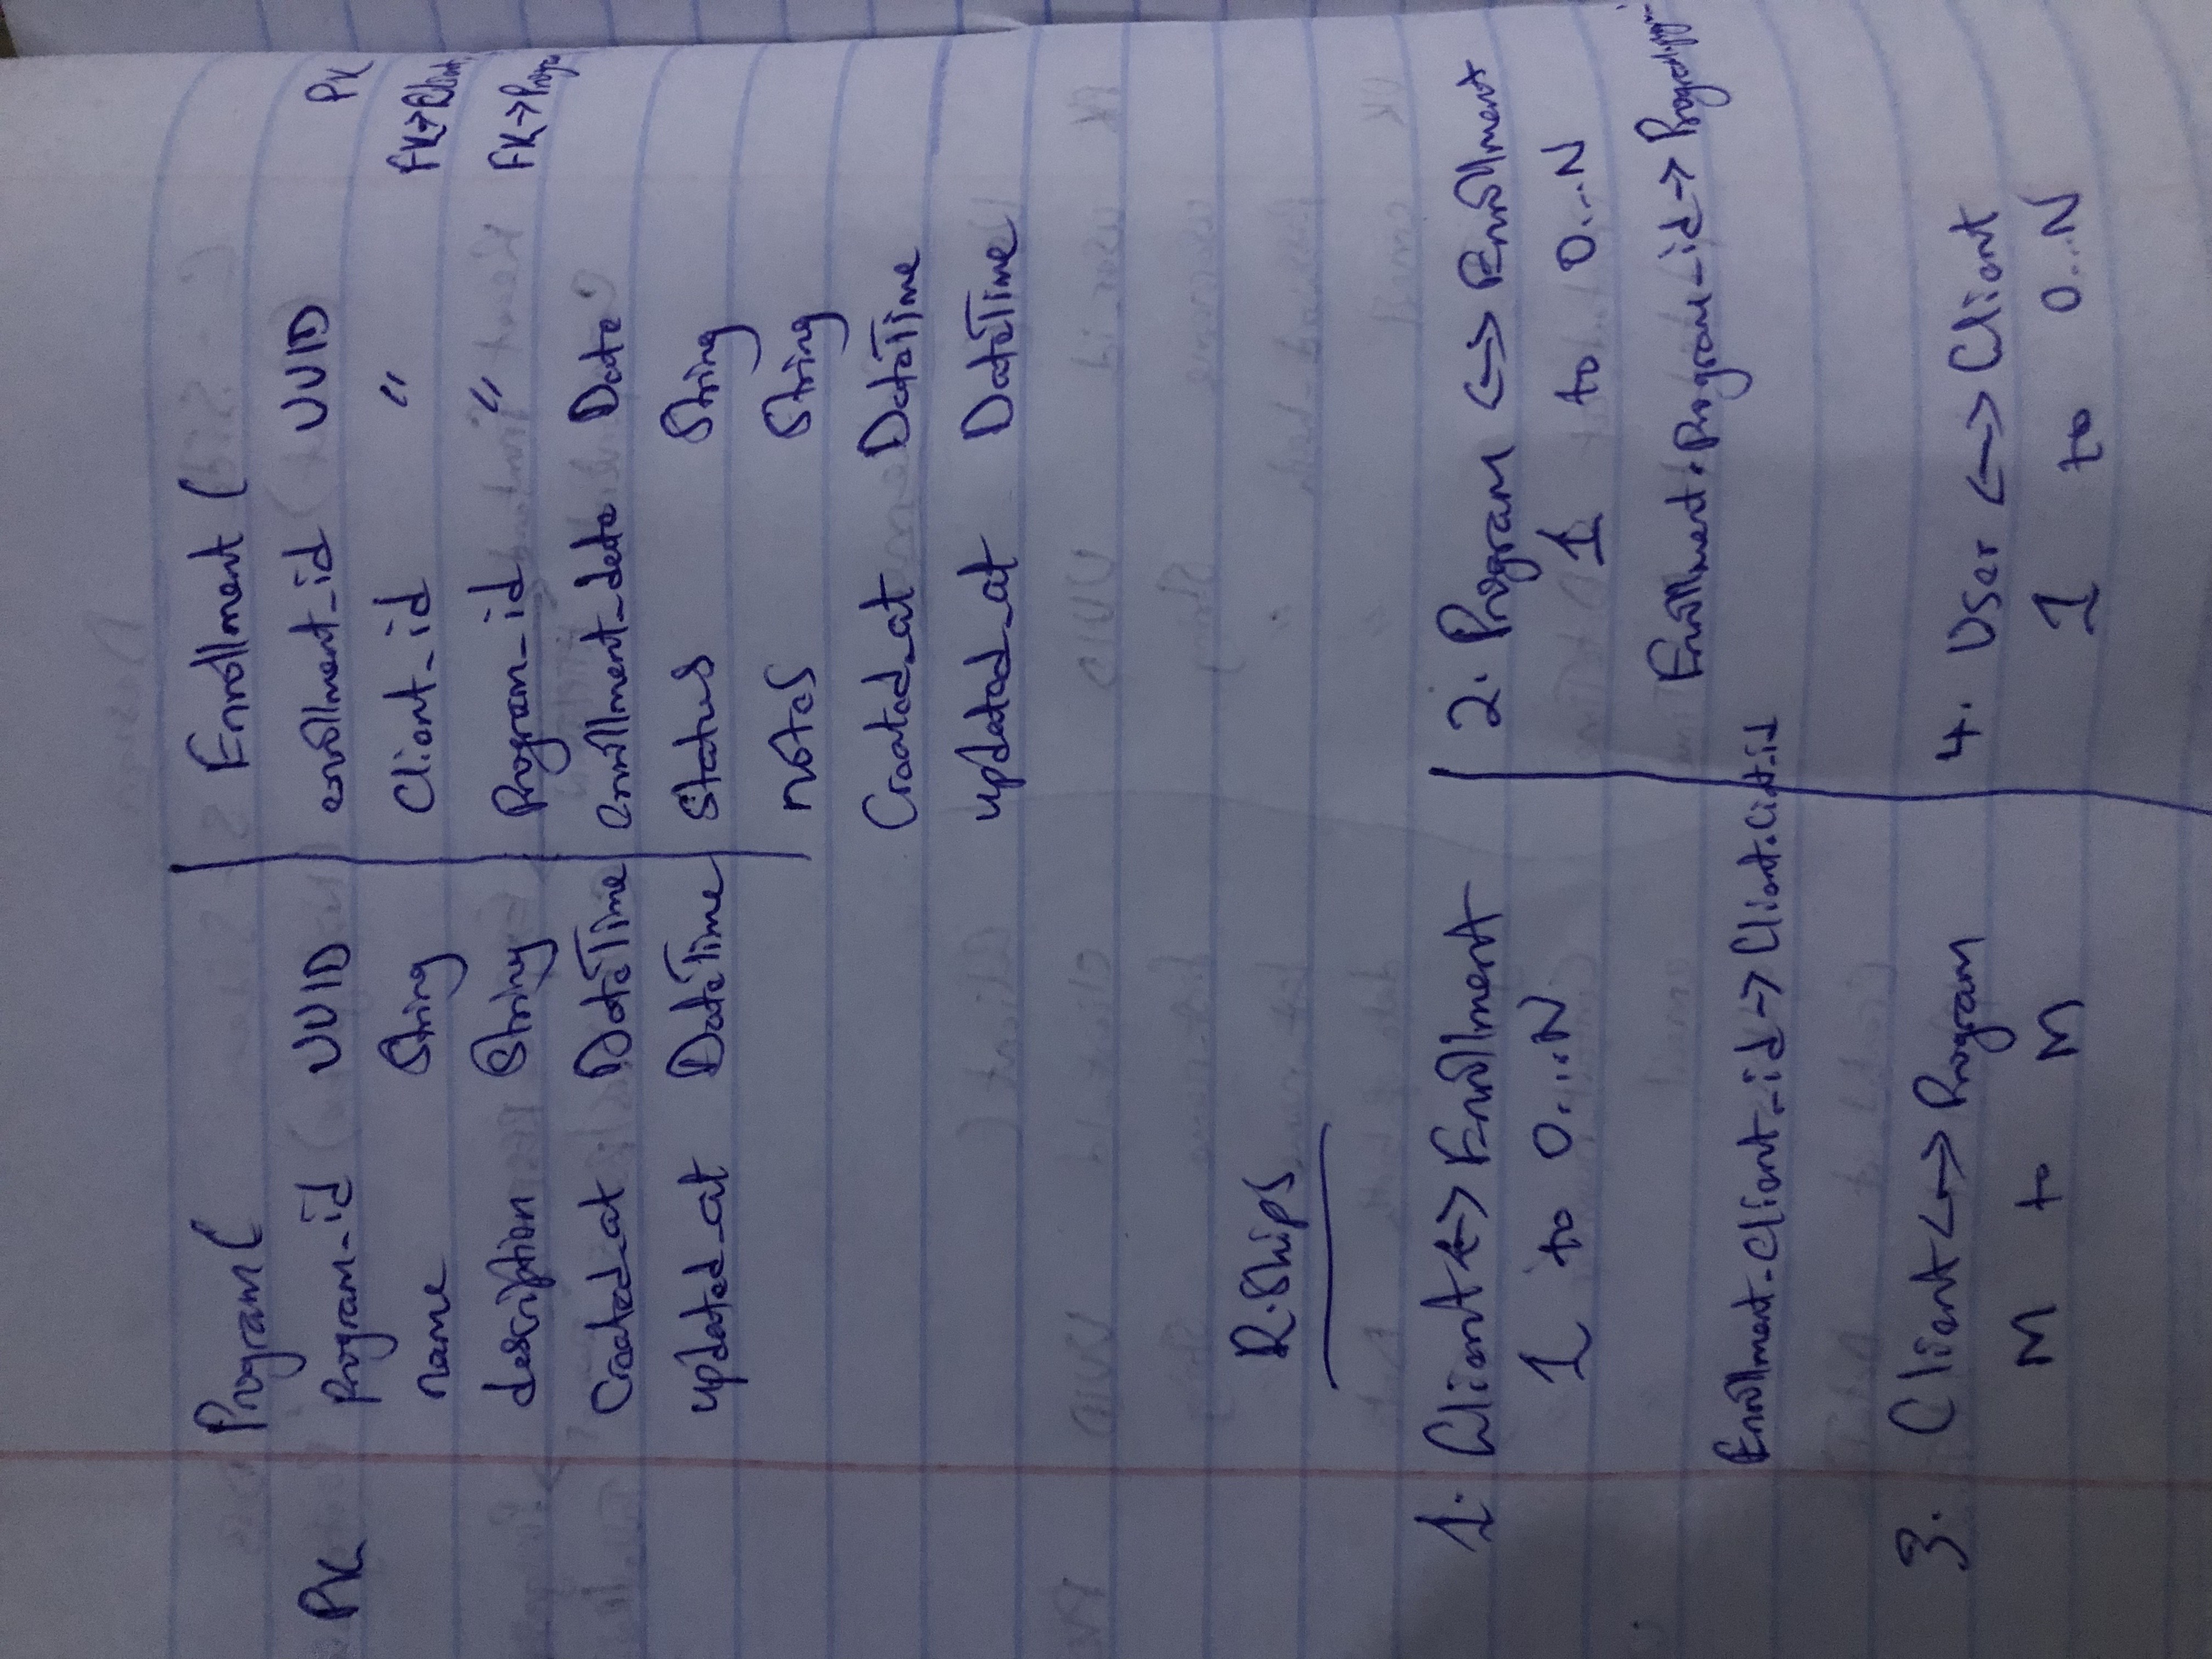 Program (
PK program_id UUID
name String
description String
Created_at DateTime
updated_at DateTime
Enrollment (
enrollment_id UUID PK
Client_id " FK→Client.
Program_id " FK→Program
enrollment_date Date
Status String
notes String
Created_at DateTime
updated_at DateTime
R.Ships
1. Client <-> Enrollment
1 to 0....N
Enrollment.Client_id -> Client.
2. Program <-> Enrollment
1 to 0...N
Enrollment.Program_id -> Program.
3. Client <-> Program
M to M
4. User <-> Client
1 to 0...N